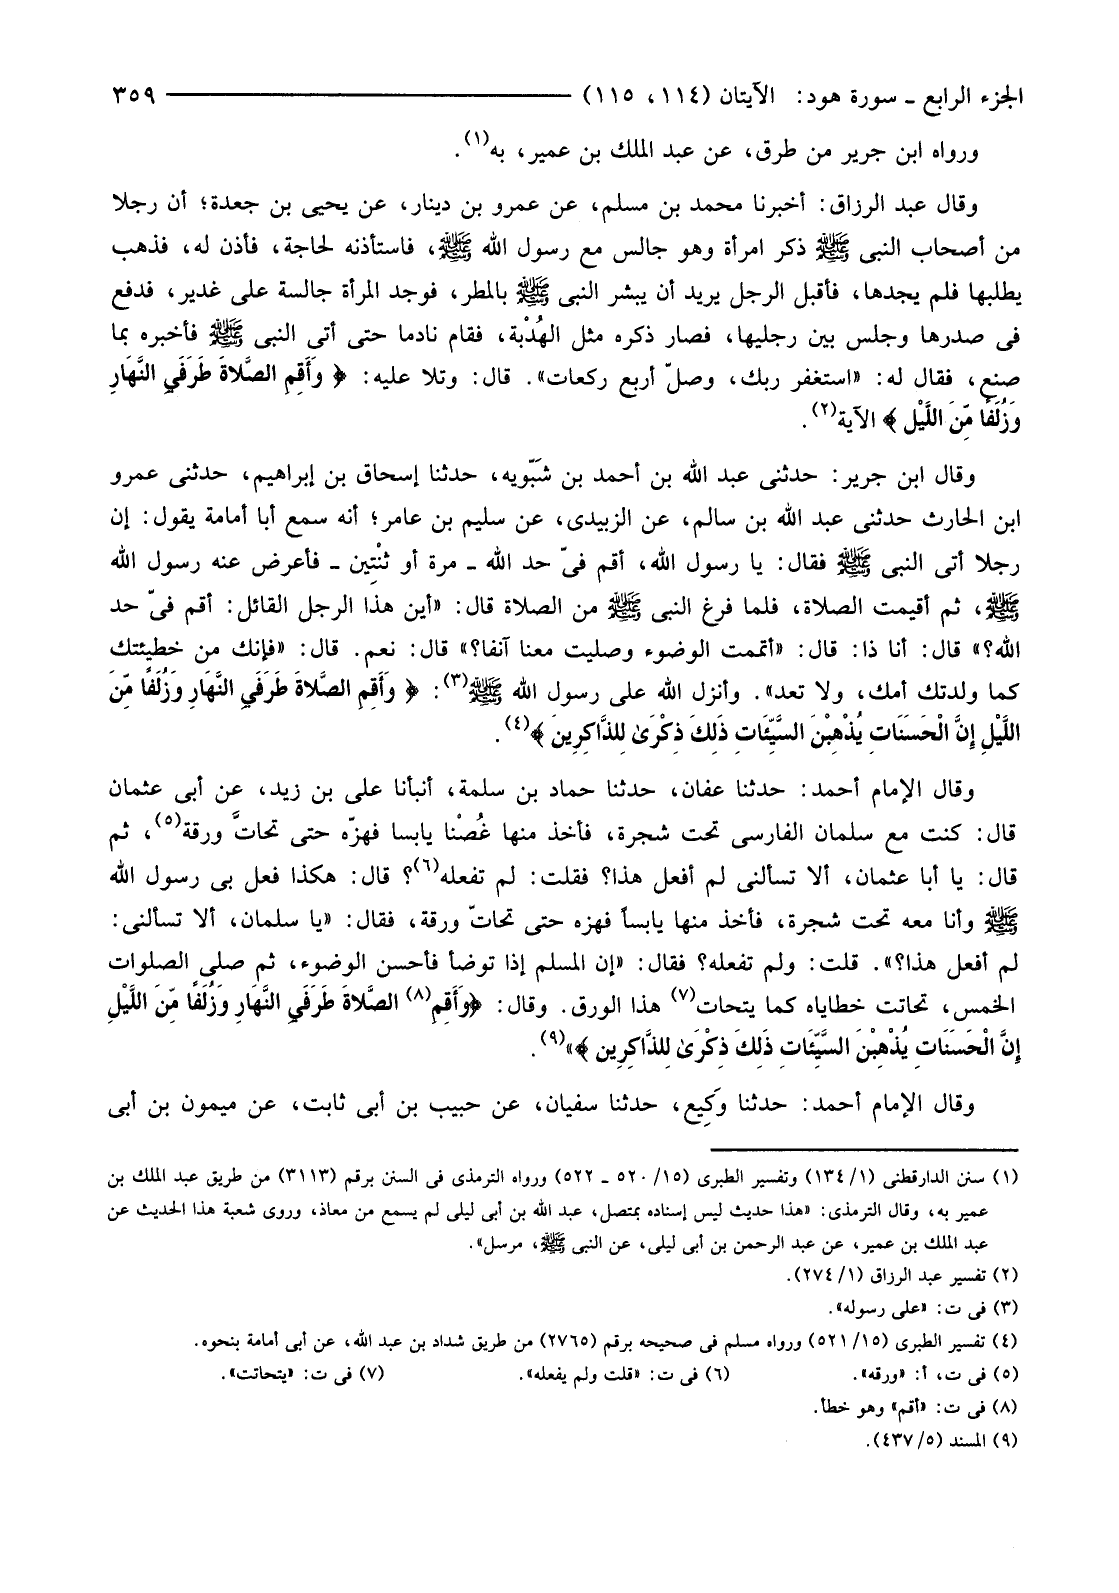 الجزء الرابع ـ سورة هود: الآيتان (١١٤، ١١٥) ٣٥٩
ورواه ابن جرير من طرق، عن عبد الملك بن عمير، به(١).
وقال عبد الرزاق: أخبرنا محمد بن مسلم، عن عمرو بن دينار، عن يحيى بن جعدة؛ أن رجلا
من أصحاب النبى ﷺ ذكر امرأة وهو جالس مع رسول الله ﷺ، فاستأذنه لحاجة، فأذن له، فذهب
يطلبها فلم يجدها، فأقبل الرجل يريد أن يبشر النبى ﷺ بالمطر، فوجد المرأة جالسة على غدير، فدفع
فى صدرها وجلس بين رجليها، فصار ذكره مثل الهُدْبة، فقام نادما حتى أتى النبى ﷺ فأخبره بما
صنع، فقال له: «استغفر ربك، وصلّ أربع ركعات». قال: وتلا عليه: ﴿ وَأَقِمِ الصَّلاةَ طَرَفَيِ النَّهَارِ
وَزُلَفًا مِّنَ اللَّيْلِ ﴾ الآية(٢).
وقال ابن جرير: حدثنى عبد الله بن أحمد بن شَبّويه، حدثنا إسحاق بن إبراهيم، حدثنى عمرو
ابن الحارث حدثنى عبد الله بن سالم، عن الزبيدى، عن سليم بن عامر؛ أنه سمع أبا أمامة يقول: إن
رجلا أتى النبى ﷺ فقال: يا رسول الله، أقم فىّ حد الله ـ مرة أو ثنْتِين ـ فأعرض عنه رسول الله
ﷺ، ثم أقيمت الصلاة، فلما فرغ النبى ﷺ من الصلاة قال: «أين هذا الرجل القائل: أقم فىّ حد
الله؟» قال: أنا ذا: قال: «أتممت الوضوء وصليت معنا آنفا؟» قال: نعم. قال: «فإنك من خطيئتك
كما ولدتك أمك، ولا تعد». وأنزل الله على رسول الله ﷺ(٣): ﴿ وَأَقِمِ الصَّلاةَ طَرَفَيِ النَّهَارِ وَزُلَفًا مِّنَ
اللَّيْلِ إِنَّ الْحَسَنَاتِ يُذْهِبْنَ السَّيِّئَاتِ ذَلِكَ ذِكْرَىٰ لِلذَّاكِرِينَ ﴾(٤).
وقال الإمام أحمد: حدثنا عفان، حدثنا حماد بن سلمة، أنبأنا على بن زيد، عن أبى عثمان
قال: كنت مع سلمان الفارسى تحت شجرة، فأخذ منها غُصْنا يابسا فهزّه حتى تحاتَّ ورقة(٥)، ثم
قال: يا أبا عثمان، ألا تسألنى لم أفعل هذا؟ فقلت: لم تفعله(٦)؟ قال: هكذا فعل بى رسول الله
ﷺ وأنا معه تحت شجرة، فأخذ منها يابساً فهزه حتى تحاتّ ورقة، فقال: «يا سلمان، ألا تسألنى:
لم أفعل هذا؟». قلت: ولم تفعله؟ فقال: «إن المسلم إذا توضأ فأحسن الوضوء، ثم صلى الصلوات
الخمس، تحاتت خطاياه كما يتحات(٧) هذا الورق. وقال: ﴿وَأَقِمِ(٨) الصَّلاةَ طَرَفَيِ النَّهَارِ وَزُلَفًا مِّنَ اللَّيْلِ
إِنَّ الْحَسَنَاتِ يُذْهِبْنَ السَّيِّئَاتِ ذَلِكَ ذِكْرَىٰ لِلذَّاكِرِينَ ﴾»(٩).
وقال الإمام أحمد: حدثنا وَكِيع، حدثنا سفيان، عن حبيب بن أبى ثابت، عن ميمون بن أبى
(١) سنن الدارقطنى (١/ ١٣٤) وتفسير الطبرى (١٥/ ٥٢٠ ـ ٥٢٢) ورواه الترمذى فى السنن برقم (٣١١٣) من طريق عبد الملك بن
عمير به، وقال الترمذى: «هذا حديث ليس إسناده بمتصل، عبد الله بن أبى ليلى لم يسمع من معاذ، وروى شعبة هذا الحديث عن
عبد الملك بن عمير، عن عبد الرحمن بن أبى ليلى، عن النبى ﷺ، مرسل».
(٢) تفسير عبد الرزاق (١/ ٢٧٤).
(٣) فى ت: «على رسوله».
(٤) تفسير الطبرى (١٥/ ٥٢١) ورواه مسلم فى صحيحه برقم (٢٧٦٥) من طريق شداد بن عبد الله، عن أبى أمامة بنحوه.
(٥) فى ت، أ: «ورقه». (٦) فى ت: «قلت ولم يفعله». (٧) فى ت: «يتحاتت».
(٨) فى ت: «أقم» وهو خطأ.
(٩) المسند (٥/ ٤٣٧).